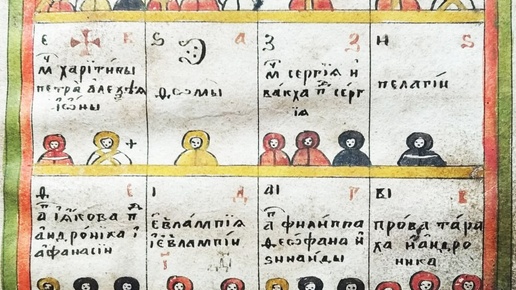 Є
М҃ харітины
петра алеѯѣѧ
іѡны
Ѕ А
ѳомы
З З
М҃ сергїѧ и
вакха п҃ серг
їѧ
Н Ѕ
пелагїи
Є
А҃ іѧкова п҃
андроніка і
афанасіи
І Д
Єѵлампїѧ
ієѵлампїи
Г
АІ Г
А҃ филиппа
ѳеофана и
зинаиды
ВІ В
Прова тара
ха и андро
ника